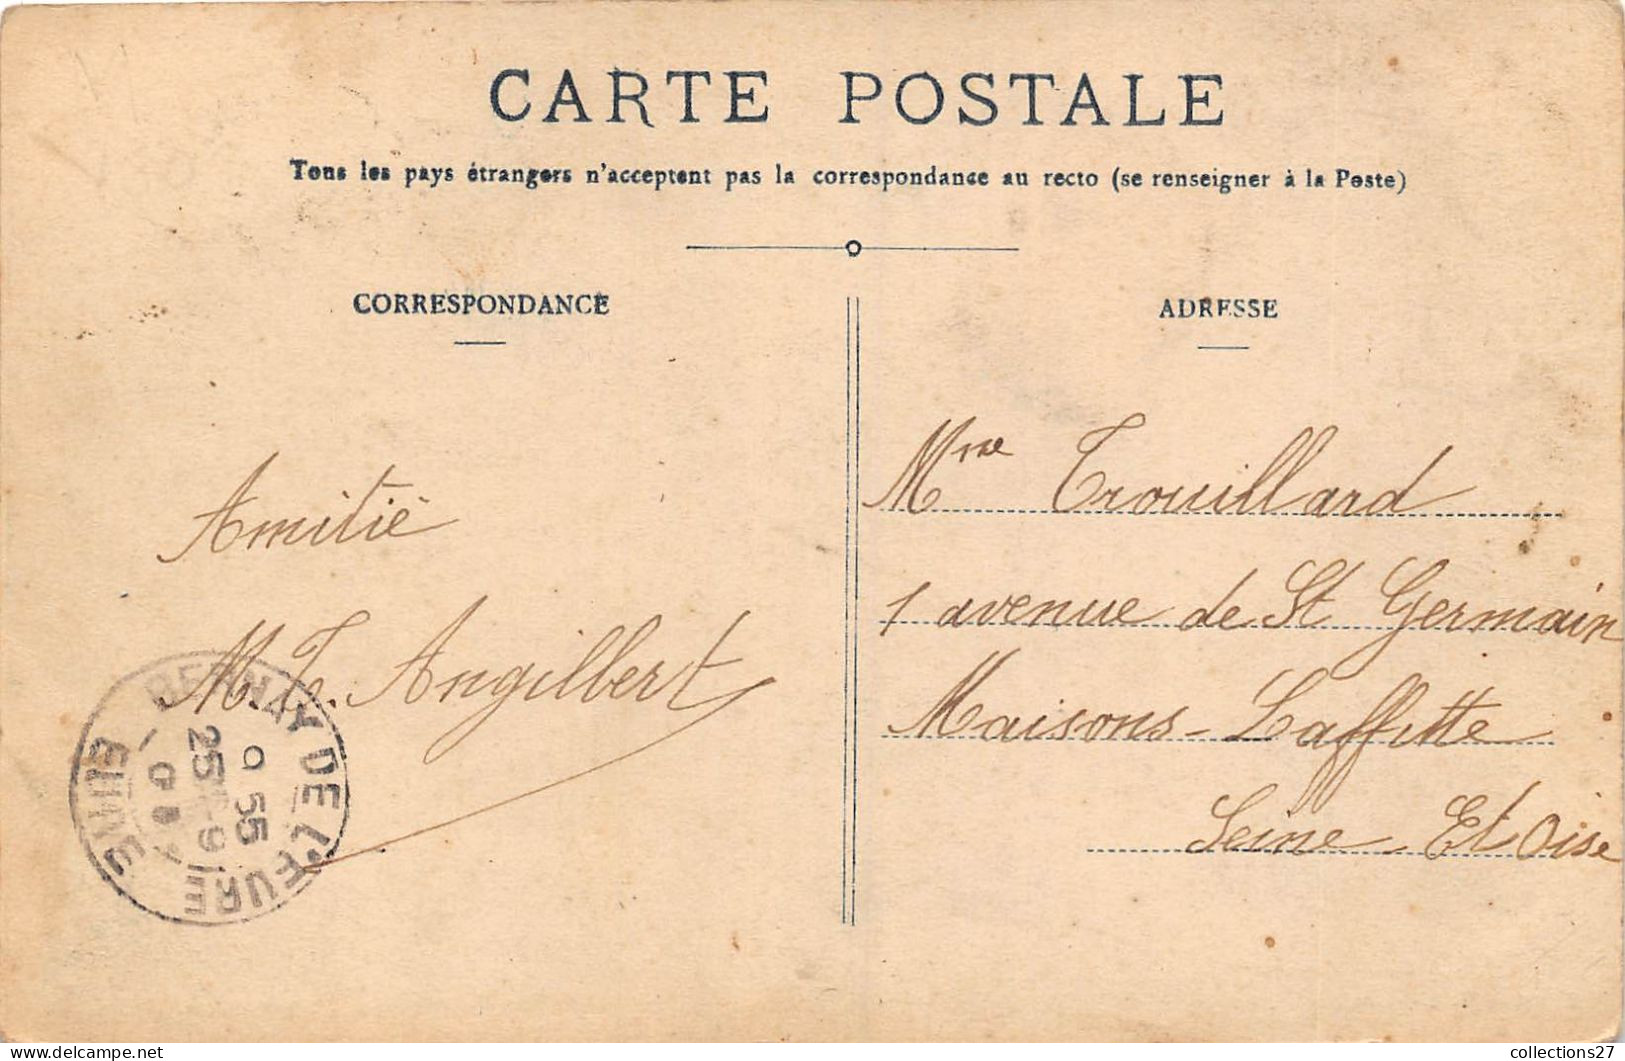 CARTE POSTALE
Tous les pays étrangers n'acceptent pas la correspondance au recto (se renseigner à la Poste)
CORRESPONDANCE
ADRESSE
Amitié
M. T. Angilbert
Mme Trouillard
1 avenue de St Germain
Maisons-Laffitte
Seine Et Oise
BERNAY DE L'EURE
EURE
9 55
25 - 9
collections27